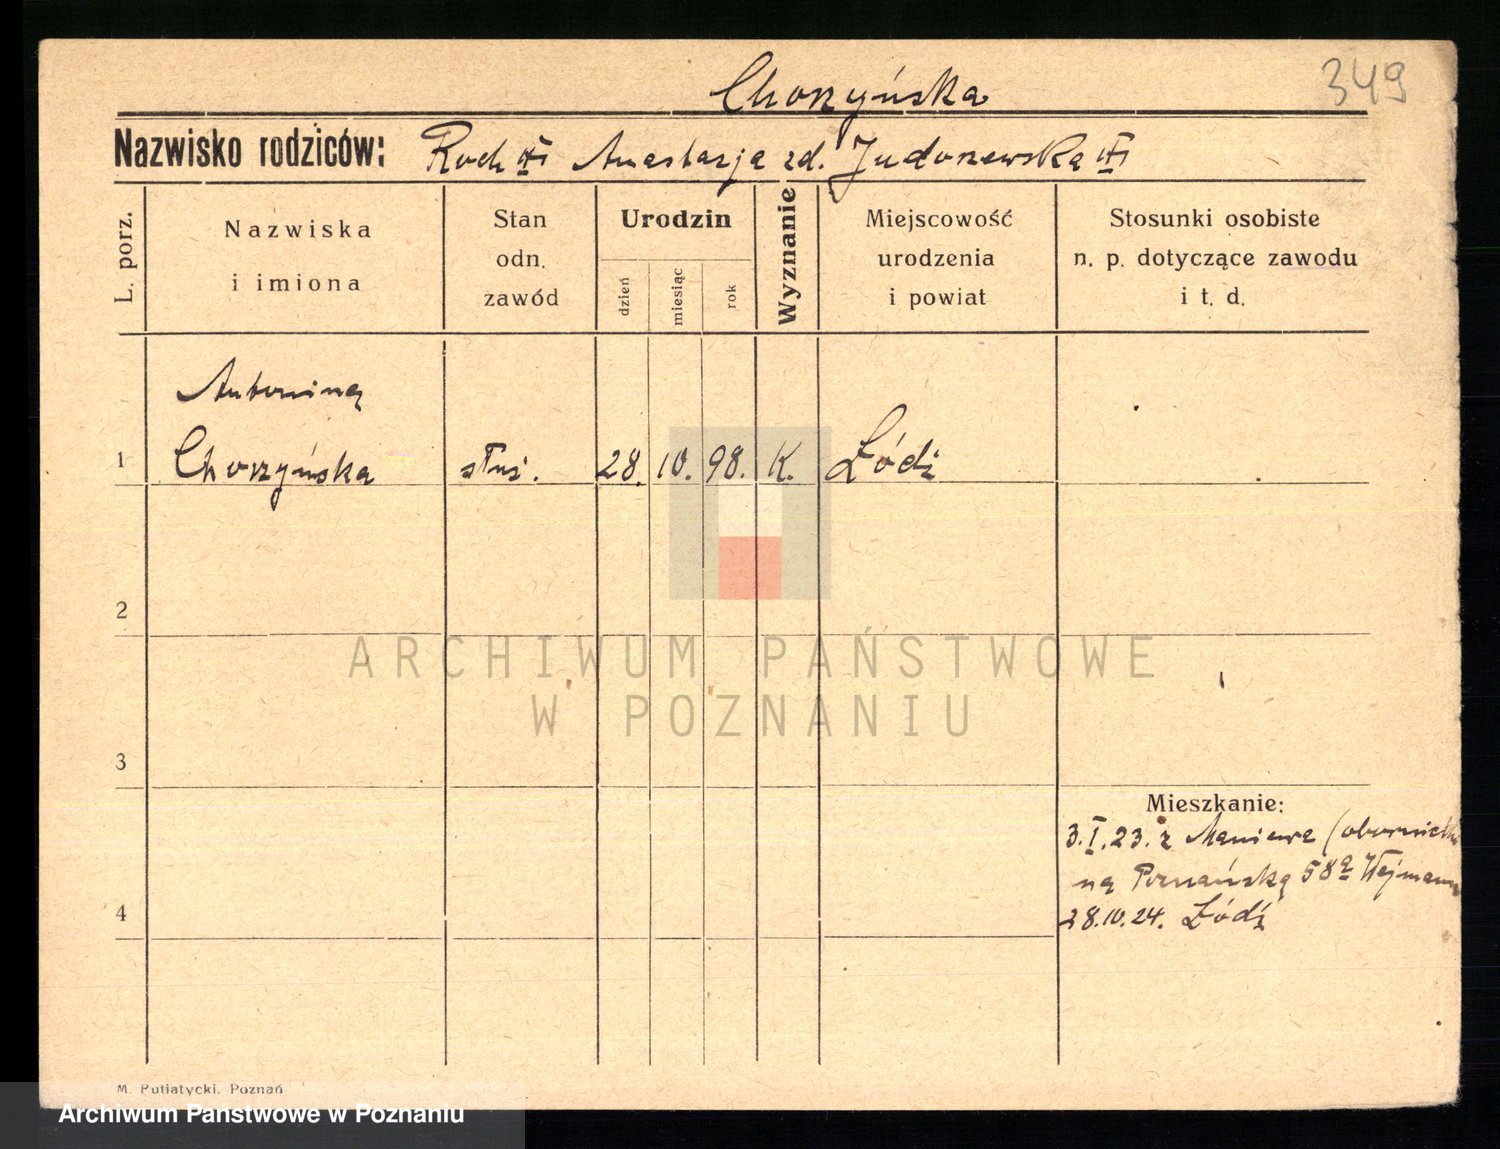 349
Chorzyńska
Nazwisko rodziców: Roch Anastazja zd.
L. porz.
Nazwiska
i imiona
Stan
odn.
zawód
Urodzin
dzień
miesiąc
rok
Wyznanie
Miejscowość
urodzenia
i powiat
Stosunki osobiste
n. p. dotyczące zawodu
i t. d.
Antonina
1 Chorzyńska służ. 28. 10. 98. K. Łódź
2
ARCHIWUM PAŃSTWOWE
W POZNANIU
3
Mieszkanie:
3.I.23. z Maniewa
na Poznańską 58a
4
28.10.24. Łódź
M. Putiatycki. Poznań
Archiwum Państwowe w Poznaniu